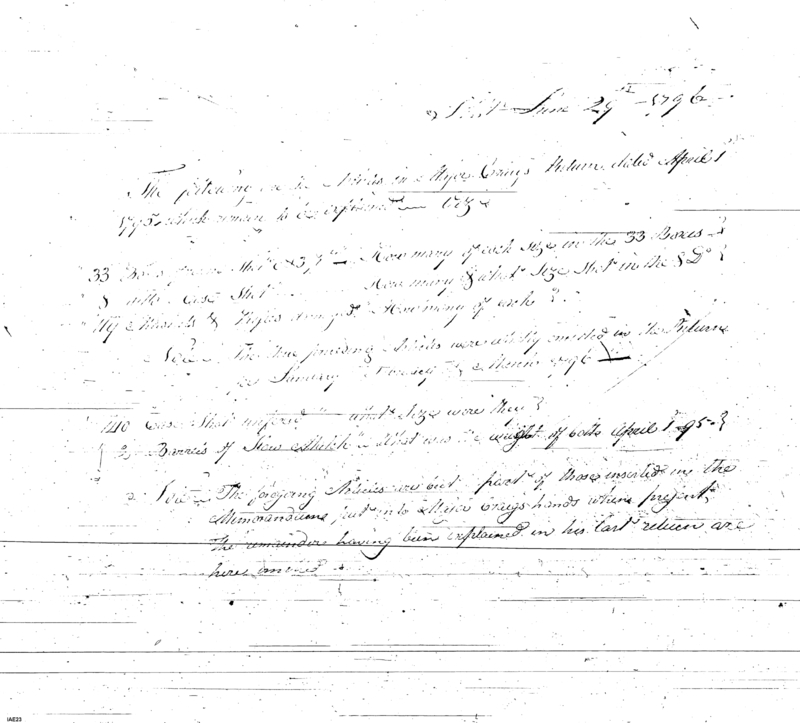 June 29th 1796
The following are the Articles in Major Craig's Return dated April 1st
1795 which remain to be explained Viz
33 Boxes Shot & 3, How many of each size in the 33 Boxes?
8 ditto Case Shot How many & what size Shot in the 8 Do?
Muskets & damgd How many of each?
Note The two foregoing Articles were wholly omitted in the Returns
for January February & March 1796
1410 Case Shot unfixed what size were they?
2 Barrels of Slow Match What was the weight of both April 1st 95?
Note The foregoing Articles are but part of those inserted in the
Memorandum put into Major Craig's hands when present,
The remainder having been explained in his last return are
here omitted
IAE23